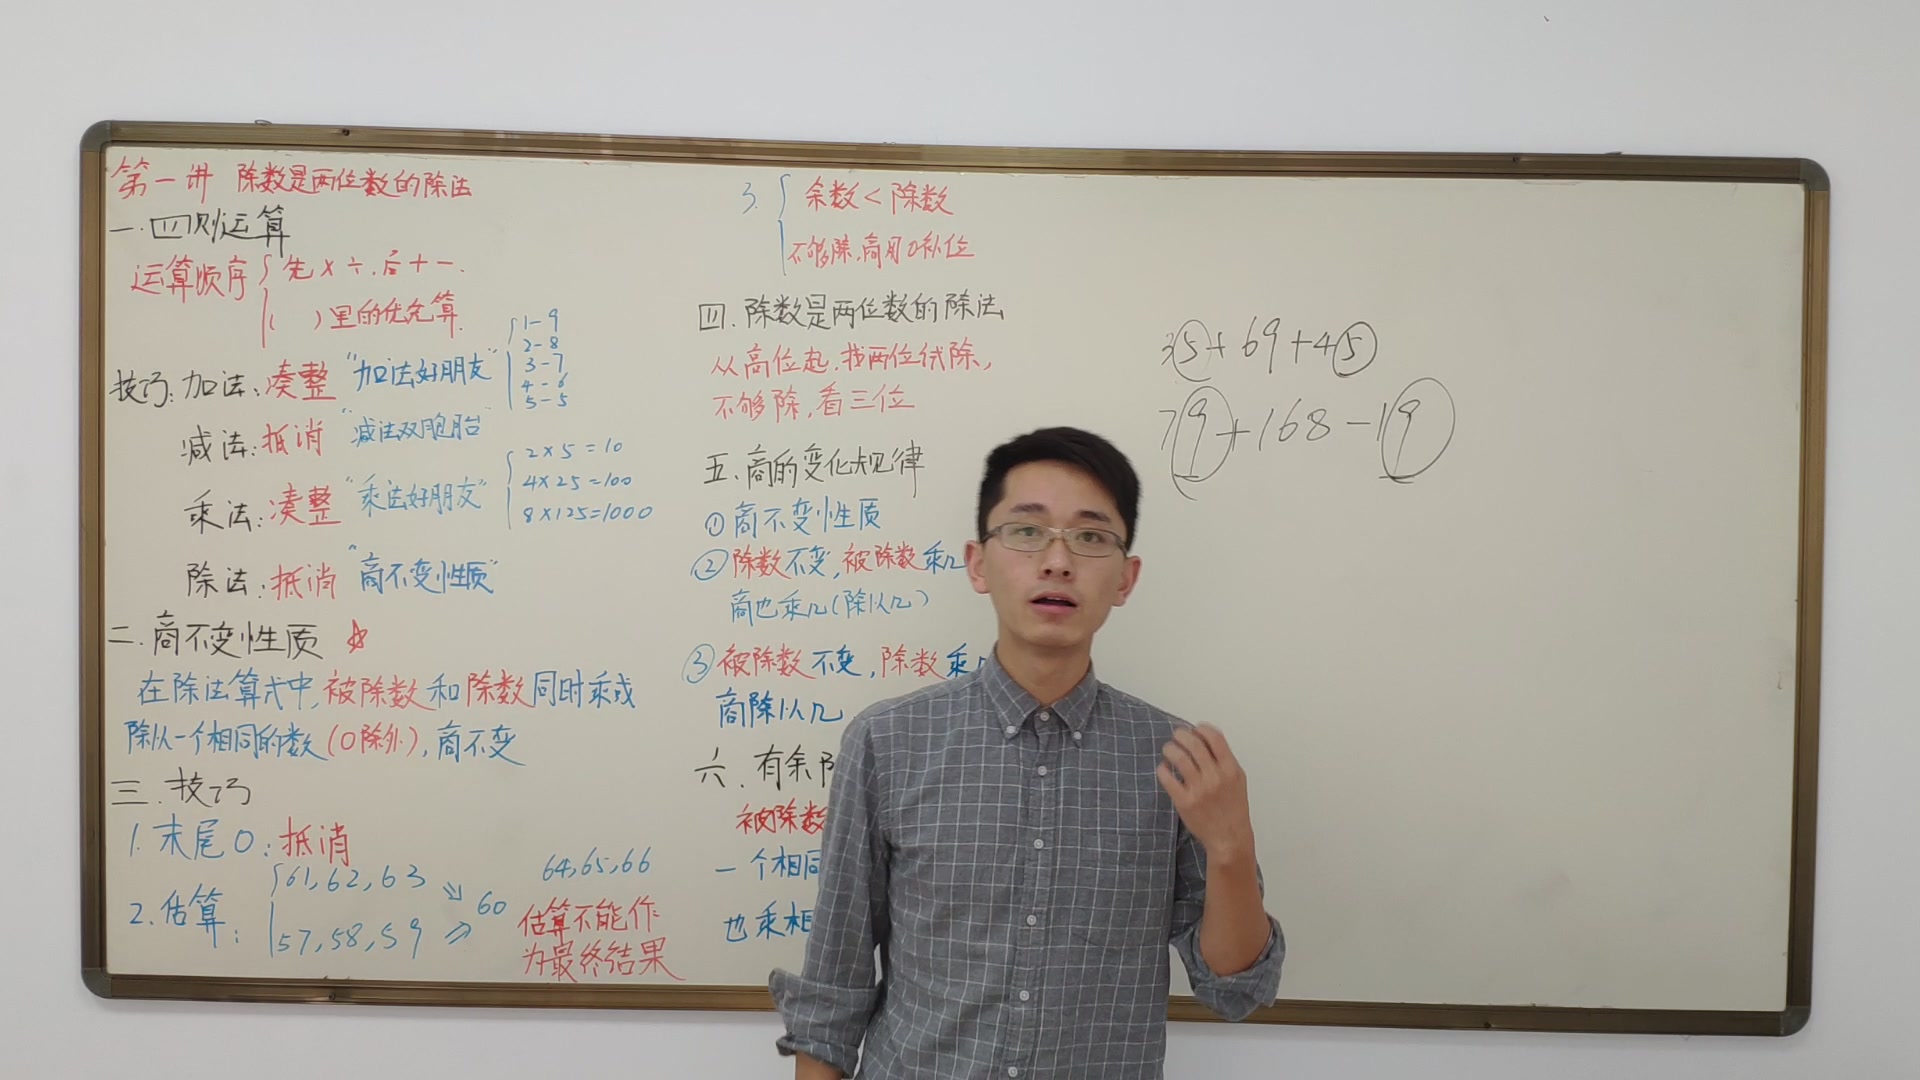 第一讲 除数是两位数的除法
一.四则运算
运算顺序 { 先×÷,后+-.
( )里的优先算.
技巧:加法:凑整 "加法好朋友" { 1-9
2-8
3-7
4-6
5-5
减法:抵消 "减法双胞胎"
乘法:凑整 "乘法好朋友" { 2×5=10
4×25=100
8×125=1000
除法:抵消 "商不变性质"
二.商不变性质 ☆
在除法算式中,被除数和除数同时乘或
除以一个相同的数(0除外),商不变
三.技巧
1.末尾0:抵消
2.估算: { 61,62,63 ↘
57,58,59 ↗ 60
64,65,66
估算不能作
为最终结果
3. { 余数<除数
不够除,商用0补位
四.除数是两位数的除法
从高位起,找两位试除,
不够除,看三位
五.商的变化规律
①商不变性质
②除数不变,被除数乘几
商也乘几(除以几)
③被除数不变,除数乘
商除以几
六.有余
被除数
一个相同
也乘相
35+69+45
79+168-19